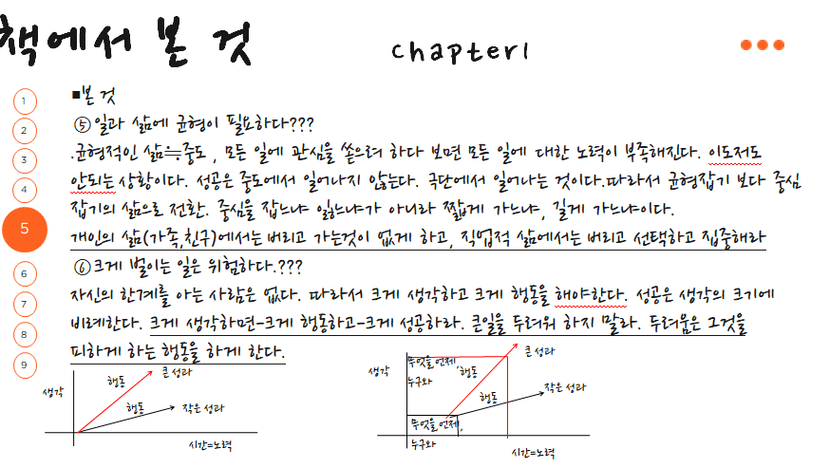 책에서 본 것
chapter1
■본 것
⑤일과 삶에 균형이 필요하다???
.균형적인 삶≒중도 , 모든 일에 관심을 쏟으려 하다 보면 모든 일에 대한 노력이 부족해진다. 이도저도
안되는 상황이다. 성공은 중도에서 일어나지 않는다. 극단에서 일어나는 것이다.따라서 균형잡기 보다 중심
잡기의 삶으로 전환. 중심을 잡느냐 잃느냐가 아니라 짧게 가느냐, 길게 가느냐이다.
개인의 삶(가족,친구)에서는 버리고 가는것이 없게 하고, 직업적 삶에서는 버리고 선택하고 집중해라
⑥크게 벌이는 일은 위험하다.???
자신의 한계를 아는 사람은 없다. 따라서 크게 생각하고 크게 행동을 해야한다. 성공은 생각의 크기에
비례한다. 크게 생각하면-크게 행동하고-크게 성공하라. 큰일을 두려워 하지 말라. 두려움은 그것을
피하게 하는 행동을 하게 한다.
1
2
3
4
5
6
7
8
9
생각
행동
큰 성과
행동
작은 성과
시간=노력
생각
무엇을 언제,
누구와
행동
큰 성과
행동
작은 성과
무엇을 언제,
누구와
시간=노력